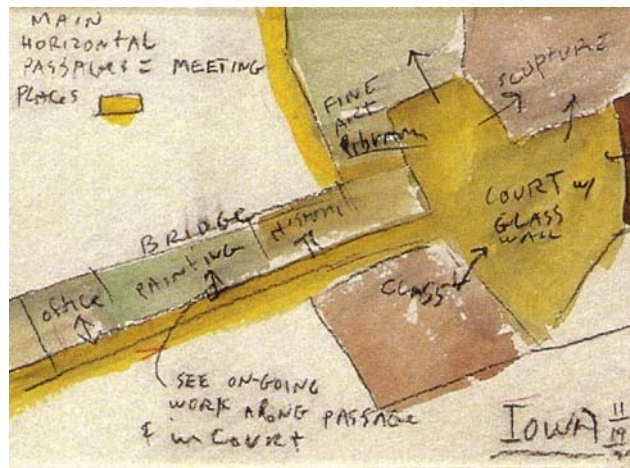 MAIN
HORIZONTAL
PASSAGES = MEETING
PLACES
FINE
ART
library
SCULPTURE
COURT W/
GLASS
WALL
BRIDGE
HISTORY
PAINTING
OFFICE
CLASS
SEE ON-GOING
WORK ALONG PASSAGE
& IN COURT
IOWA 11
19